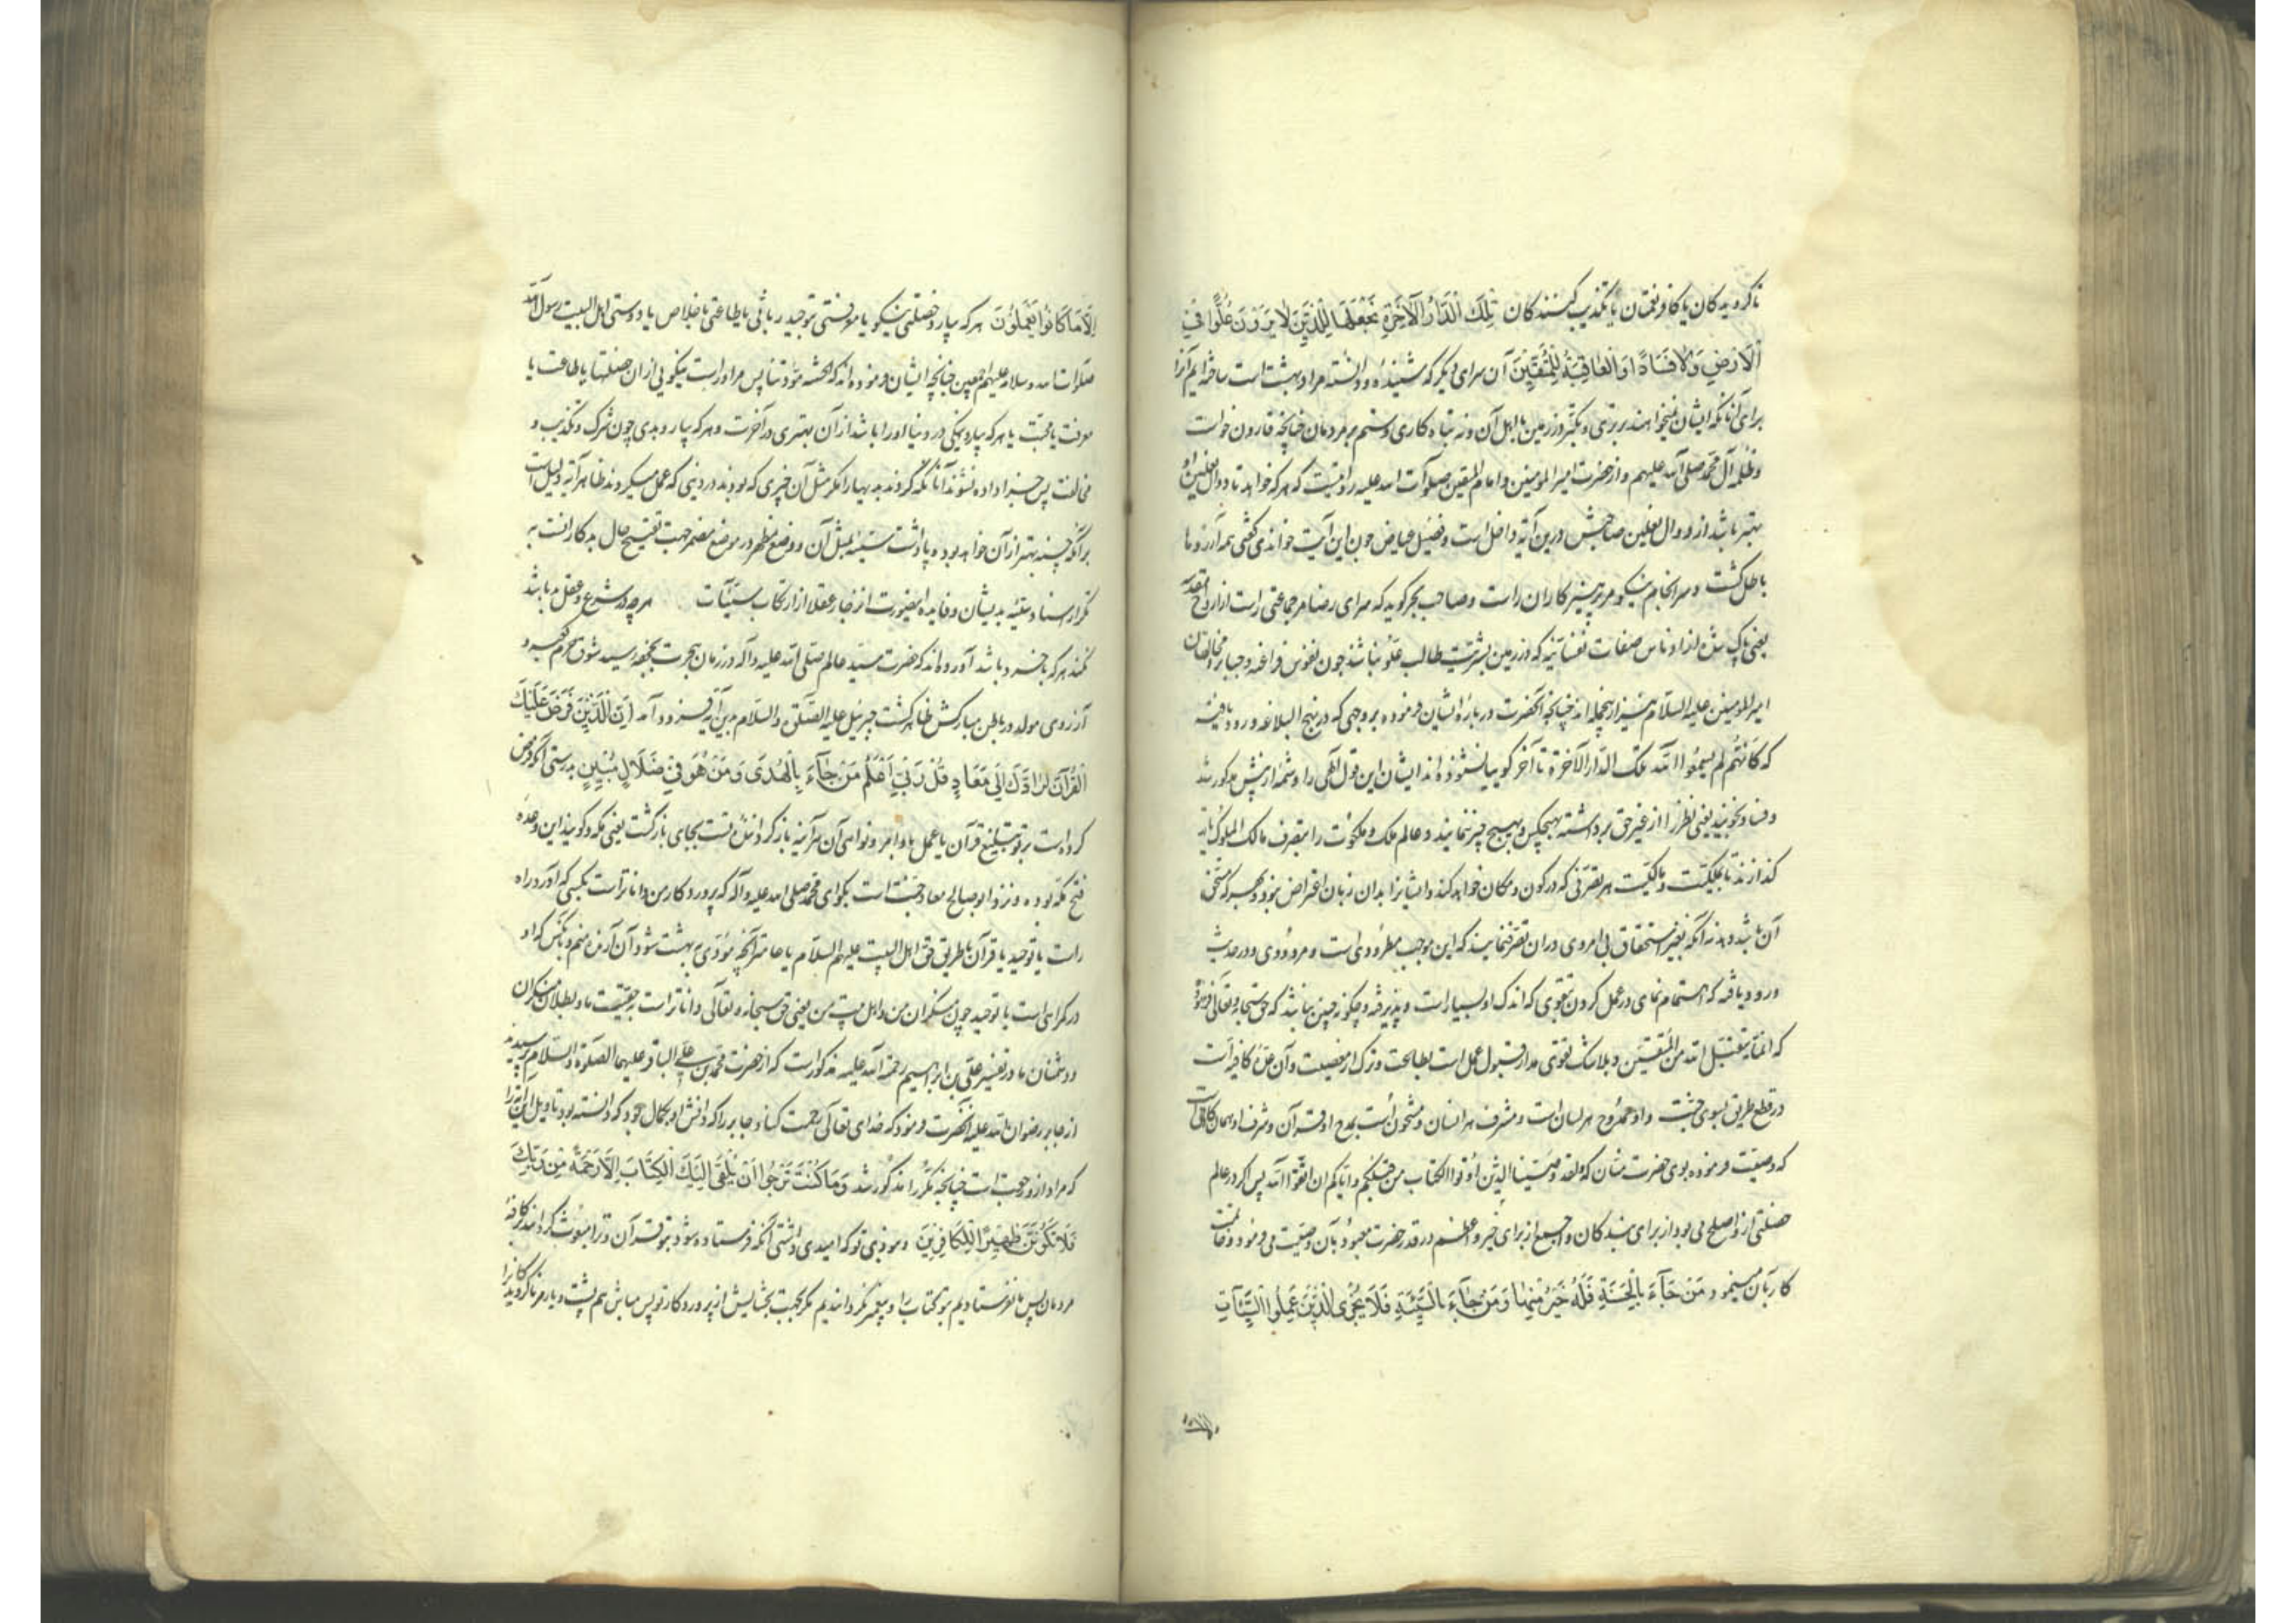 ناکرویدکان یا کافر نعمتان یا تکذیب کنندکان تِلْكَ الدَّارُ الْآخِرَةُ نَجْعَلُهَا لِلَّذِينَ لَا يُرِيدُونَ عُلُوًّا فِي
الْأَرْضِ وَلَا فَسَادًا وَالْعَاقِبَةُ لِلْمُتَّقِينَ آن سرای دیکر که شنیدهٔ و دانسته مراد بهشت است ساخته ایم آنرا
برای آنانکه ایشان نمیخواهند برتری و تکبر در زمین با اهل آن و نه تباه کاری و ستم بر مردمان چنانچه قارون خواست
و ظلمه آل محمد صلی الله علیهم و از حضرت امیر المومنین و امام المتقین صلوات الله علیه روایتست که هر که خواهد تا دوال نعلین او
بهتر باشد از دوال نعلین صاحبش درین آیه داخل است و فضیل عیاض چون این آیت خواندی کفتی همه آرزوها
باطل کشت و سرانجام نیکو مر پرهیزکاران راست و صاحب بحر کوید که سرای رضا مر جماعتی راست از ارواح مقدسه
یعنی پاک شده از ادناس صفات نفسانیه که در زمین بشریت طالب علو نباشند چون نفوس فراعنه و جبابره و مخالفان
امیر المومنین علیه السلام نیز از ینجمله اند چنانچه آنحضرت در بارهٔ ایشان فرموده بر وجهی که در نهج البلاغه ورود یافته
که کانّهم لم یسمعوا الله تلک الدار الآخرة تا آخر کویا نشنوده اند ایشان این قول الهی را و شمه از پیش مذکور شد
و فساد نجویند یعنی نظر را از غیر حق برداشته بهیچکس و بهیچ چیز ننمایند و عالم ملک و ملکوت را بتصرف مالک الملوک باز
کذارند تا بملکیت و مالکیت هر تصرفی که در کون و مکان خواهد کند و ایشانرا بدان زبان اعتراض نبود و بهر که مستحق
آن باشد دهد نه آنکه بغیر استحقاق بی امر وی در ان تصرف نمایند که این موجب مطرودی است و مردودی و در حدیث
ورود یافته که اهتمام نمای در عمل کردن بتقوی که اندک او بسیار است و پذیرفته و چکونه چنین نباشد که حق سبحانه و تعالی فرموده
که انما یتقبل الله من المتقین و بلاشک تقوی مدار قبول عمل است بطاعت و ترک از معصیت و آن عمل کافی است
در قطع طریق بسوی جنت و او ممدوح هر لسان است و مشرف هر انسان و مشحون است بمدح او قرآن و شرف او همان کافیست
که وصیت فرموده بوی حضرت منان که و لقد وصینا الذین اوتوا الکتاب من قبلکم و ایاکم ان اتقوا الله پس اکر در عالم
خصلتی از او اصلح می بود از برای بندکان و اجمع از برای خیر و اعظم در قدر حضرت معبود بآن وصیت می فرمود و خاتمت
کار بآن مینمود وَمَنْ جَآءَ بِالْحَسَنَةِ فَلَهُ خَيْرٌ مِنْهَا وَمَنْ جَآءَ بِالسَّيِّئَةِ فَلَا يُجْزَى الَّذِينَ عَمِلُوا السَّيِّئَاتِ
إِلَّا مَا كَانُوا يَعْمَلُونَ هر که بیارد خصلتی نیکو یا معرفتی بتوحید ربانی یا طاعتی باخلاص یا دوستی اهل البیت رسول الله
صلوات الله و سلامه علیهم اجمعین چنانچه ایشان فرموده اند که الحسنة مودتنا پس مر او راست نیکویی از ان خصلتها یا طاعت یا
معرفت یا محبت یا هر که بیارد نیکی در دنیا او را باشد از آن بهتری در آخرت و هر که بیارد بدی چون شرک و تکذیب و
مخالفت پس جزا داده نشوند آنانکه کردند بدیها را مکر مثل آن چیزی که بودند در دنیی که عمل میکردند ظاهر آیه دلیل است
بر آنکه حسنه بهتر از آن خواهد بود و پاداشت سیئه بمثل آن و وضع مظهر در موضع مضمر جهت تقبیح حال بدکار است به
تکرار اسناد سیئه بدیشان و فایده اینصورت انزجار عقلا از ارتکاب سیئات هرچه در شرع و عقل بد باشد
نکند هر که با خرد باشد آورده اند که حضرت سید عالم صلی الله علیه و آله در زمان هجرت بجحفه رسید شوق حرم کعبه و
آرزوی مولد در باطن مبارکش ظاهر کشت جبرئیل علیه الصلوة و السلام بدین آیه فرود آمد إِنَّ الَّذِي فَرَضَ عَلَيْكَ
الْقُرْآنَ لَرَادُّكَ إِلَى مَعَادٍ قُلْ رَبِّي أَعْلَمُ مَنْ جَآءَ بِالْهُدَى وَمَنْ هُوَ فِي ضَلَالٍ مُبِينٍ بدرستی آنکه فرض
کرده است بر تو تبلیغ قرآن یا عمل باوامر و نواهی آن هرآینه بازکرداننده تست بجای بازکشت یعنی مکه و کویند این وعده
فتح مکه بوده و نزد ابوصالح معاد جنت است بکو ای محمد صلی الله علیه و آله که پروردکار من داناتر است بکسی که آورد راه
راست یا توحید یا قرآن یا طریق حق اهل البیت علیهم السلام یا عامتر آنچه مؤدی بهشت شود و آن آرنده منم و بانکس که او
در کمراهی است یا توحید چون منکران من و اهل بیت من یعنی حق سبحانه و تعالی داناتر است بحقیقت ما و بطلان منکران
و دشمنان ما در تفسیر علی بن ابراهیم رحمة الله علیه مذکور است که از حضرت محمد بن علی الباقر علیهما الصلوة و السلام پرسیدند
از جابر رضوان الله علیه آنحضرت فرمود که خدای تعالی رحمت کناد جابر را که دانش او بکمال بود که دانسته بود تاویل این آیه را
که مراد از و رجعت است چنانچه مکررا مذکور شد وَمَا كُنْتَ تَرْجُوا أَنْ يُلْقَى إِلَيْكَ الْكِتَابُ إِلَّا رَحْمَةً مِنْ رَبِّكَ
فَلَا تَكُونَنَّ ظَهِيرًا لِلْكَافِرِينَ و نبودی تو که امیدی داشتی آنکه فرستاده شود بتو قرآن و ترا مبعوث کردانند بکافه
مردمان پس نفرستادیم بتو کتاب را و پیغمبر نکردانیدیم مکر بجهت بخشایش از پروردکار تو پس مباش هم پشت و یار مر ناکرویدکانرا